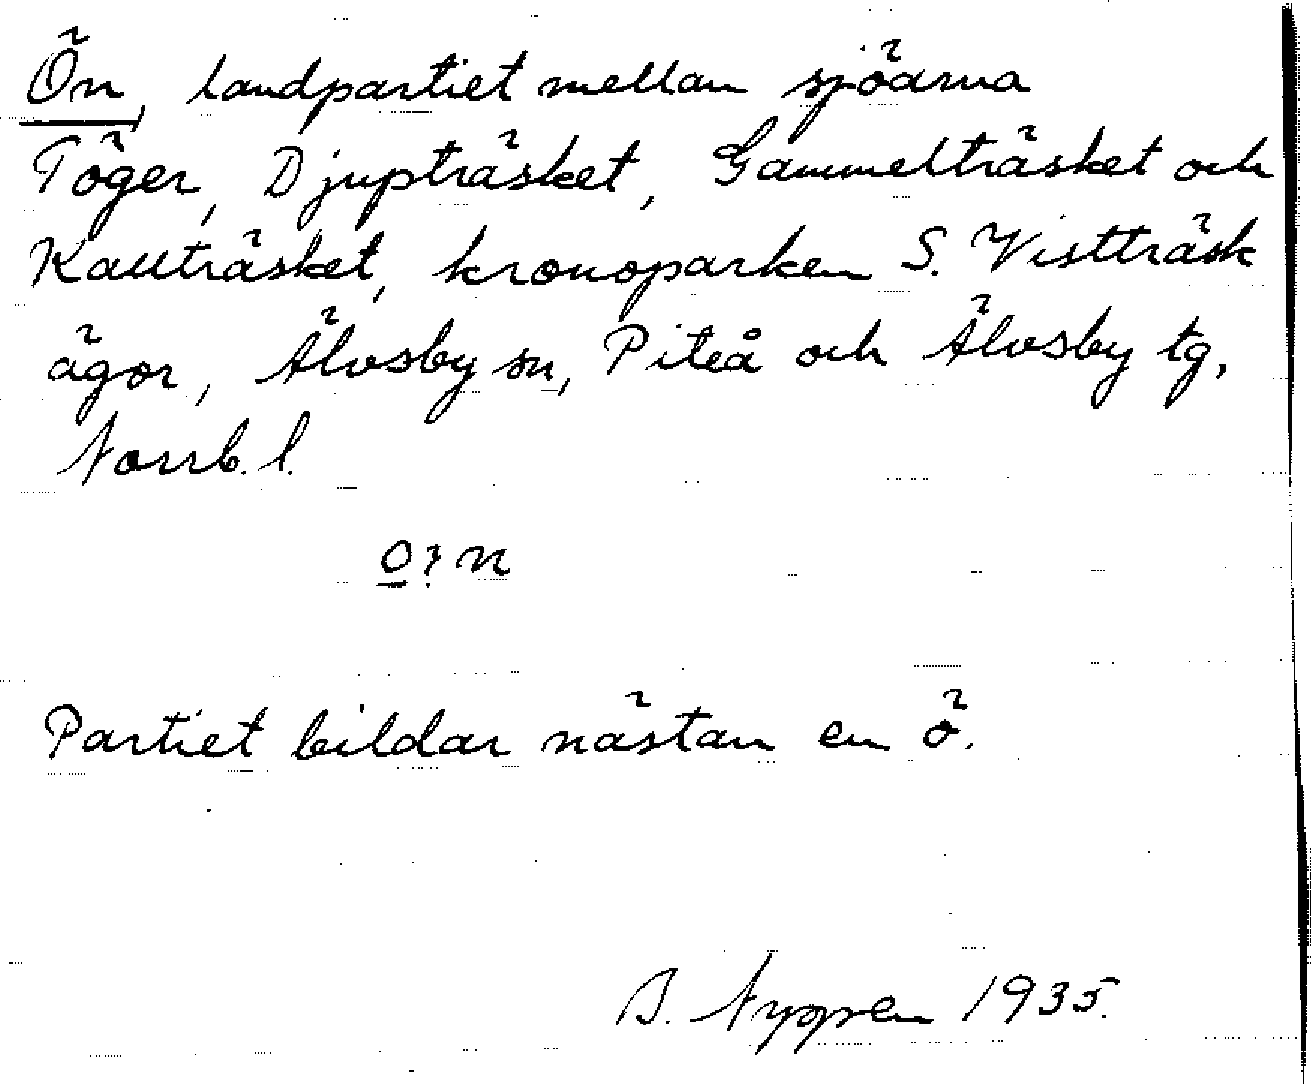 Ön, landpartiet mellan sjöarna
Töger, Djupträsket, Gammelträsket och
Kallträsket, kronoparken S. Vistträsk
ägor, Älvsby sn, Piteå och Älvsby tg,
Norrb. l.
o̲ ? n
Partiet bildar nästan en ö.
1935.